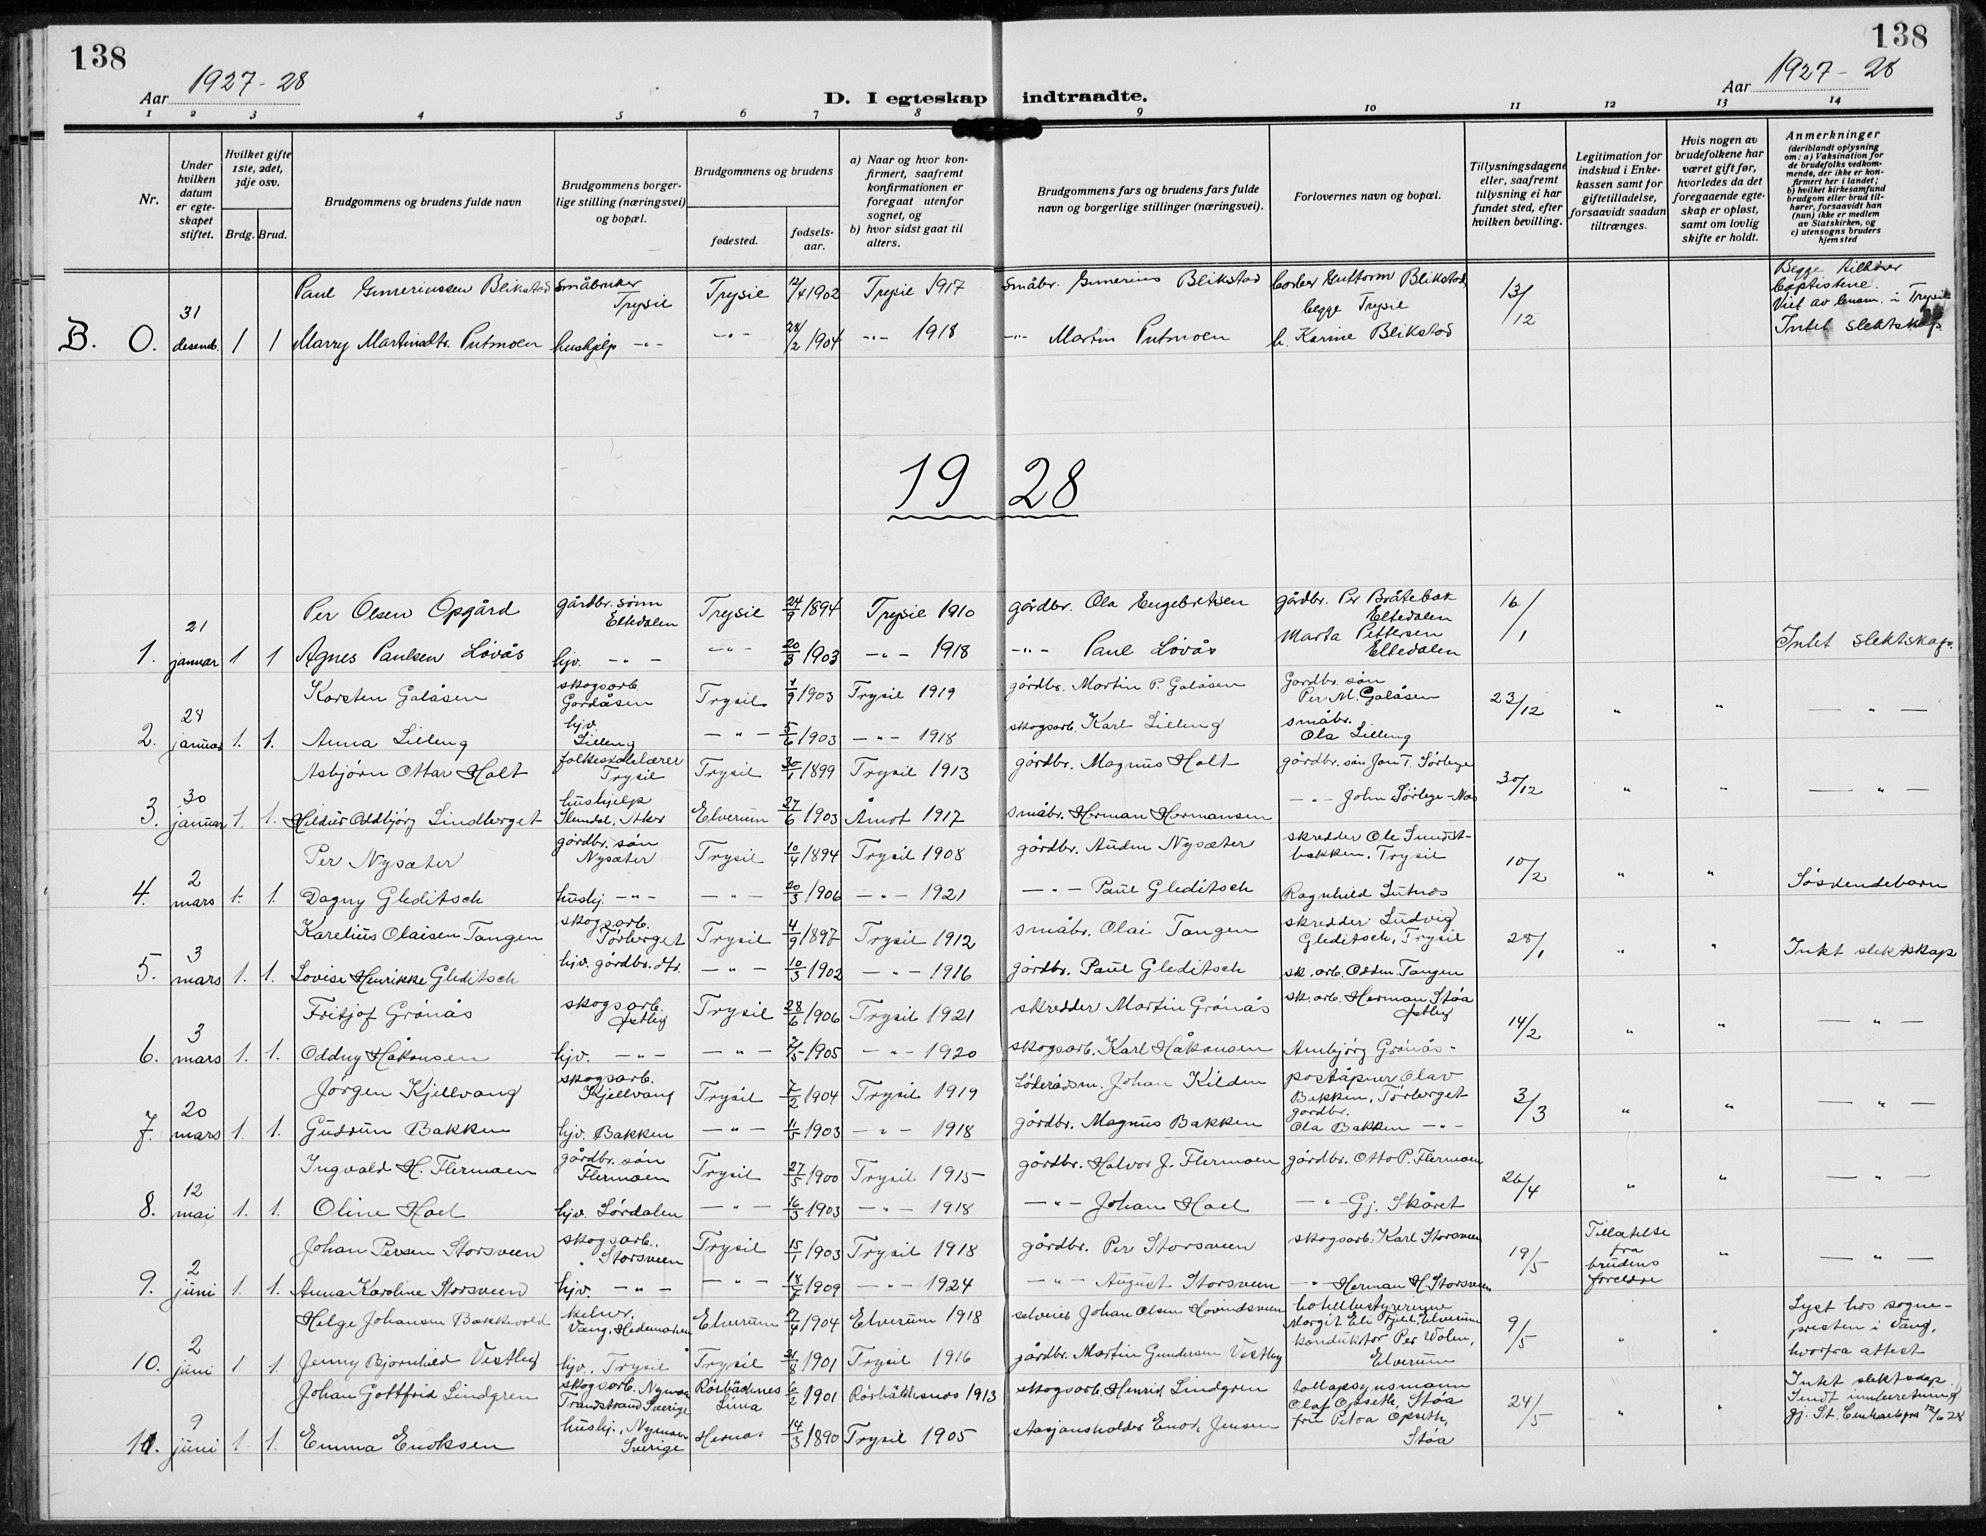 138
138
Aar 1927-28
Aar 1927-28
D. I egteskap indtraadte.
1 2 3 4 5 6 7 8 9 10 11 12 13 14
Nr.
Under hvilken datum er egteskapet stiftet.
Hvilket gifte 1ste, 2det, 3dje osv.
Brdg. Brud.
Brudgommens og brudens fulde navn
Brudgommens borgerlige stilling (næringsvei) og bopæl.
Brudgommens og brudens
fødested.
fødselsaar.
a) Naar og hvor konfirmert, saafremt konfirmationen er foregaat utenfor sognet, og
b) hvor sidst gaat til alters.
Brudgommens fars og brudens fars fulde navn og borgerlige stillinger (næringsvei).
Forlovernes navn og bopæl.
Tillysningsdagene eller, saafremt tillysning ei har fundet sted, efter hvilken bevilling.
Legitimation for indskud i Enkekassen samt for giftetilladelse, forsaavidt saadan tiltrænges.
Hvis nogen av brudefolkene har været gift før, hvorledes da det foregaaende egteskap er opløst, samt om lovlig skifte er holdt.
Anmerkninger
(deriblandt oplysning om: a) Vaksination for de brudefolks vedkommende, der ikke er konfirmert her i landet; b) hvilket kirkesamfund brudgom eller brud tilhører, forsaavidt han (hun) ikke er medlem av Statskirken, og c) utensogns bruders hjemsted
Paul Gunneriussen Blikstad småbruker Trysil Trysil 12/4 1902 Trysil 1917 småbr. Gunerius Blikstad Guttorm Blikstad begge Trysil 13/12 Begge tilhører baptistene. Viet av i Trysil
B. 0. 31 desemb. 1 1 Marry Martinsdtr. Putmoen hushjelp -"- -"- 28/2 1904 -"- 1918 -"- Martin Putmoen Karine Blikstad Intet slektskap.
1928
Per Olsen Opgård gårdbr. sönn Eltedalen Trysil 24/9 1894 Trysil 1910 gårdbr. Ola Engebretsen gårdbr. Per Bråtebæk Eltedalen 16/1
1. 21 januar 1 1 Agnes Paulsen Lövås hjv. -"- -"- 20/3 1903 -"- 1918 -"- Paul Lövås Marta Pettersen Eltedalen Intet slektskap.
Karsten Galåsen skogsarb. Gordåsen Trysil 1/9 1903 Trysil 1919 gårdbr. Martin P. Galåsen Gårdbr. sön Per M. Galåsen 23/12 " " — " —
2. 28 januar 1. 1. Anna Lilleng hjv. Lilleng — " — 5/6 1903 -"- 1918 skogsarb. Karl Lilleng småbr. Ola Lilleng
Asbjörn Ottar Holt folkeskolelærer Trysil Trysil 30/1 1899 Trysil 1913 gårdbr. Magnus Holt gårdbr. sön Jon T. Sörlege 30/12 " " — " —
3. 30 januar 1. 1. Hildur Oddbjörg Lindberget hushjelp Slemdal, Aker Elverum 27/6 1903 Åmot 1917 småbr. Herman Hermansen — " — John Sörlege-Moe
Per Nysæter gårdbr. sön Nysæter Trysil 10/4 1894 Trysil 1908 gårdbr. Audun Nysæter skredder Ole Sundstbakken, Trysil 10/2 " "
4. 2 mars 1. 1. Dagny Gleditsch hushj. -"- — " — 20/3 1906 -"- 1921 — " — Paul Gleditsch Ragnhild Lutnæs Söskendebarn
Karelius Olaisen Tangen skogsarb. Törberget Trysil 4/9 1897 Trysil 1912 småbr. Olai Tangen skredder Ludvig Gleditsch, Trysil 28/1 " "
5. 3 mars 1. 1. Lovise Henrikke Gleditsch hjv. gårdbr. dtr. — " — 10/3 1902 -"- 1916 gårdbr. Paul Gleditsch sk. arb. Oddm. Tangen Intet slektskap
Fritjof Grönås skogsarb. Östby Trysil 28/6 1906 Trysil 1921 skredder Martin Grönås sk. arb. Herman Stöa Östby 14/2 " " — " —
6. 3 mars 1. 1. Oddny Håkonsen hjv. -"- — " — 7/5 1905 -"- 1920 skogsarb. Karl Håkonsen Ambjörg Grönås
Jörgen Kjellvang skogsarb. Kjellvang Trysil 7/2 1904 Trysil 1919 Johan Kilden poståpner Olav Bakken, Törberget 3/3 " " — " —
7. 20 mars 1. 1. Gudrun Bakken hjv. Bakken — " — 11/5 1903 -"- 1918 gårdbr. Magnus Bakken gårdbr. Ola Bakken -"-
Ingvald H. Flermoen gårdbr. sön Flermoen Trysil 27/5 1900 Trysil 1915 gårdbr. Halvor J. Flermoen gårdbr. Otto P. Flermoen 26/4 " " — " —
8. 12 mai 1. 1. Oline Hoel hjv. Lördalen — " — 16/3 1903 -"- 1918 — " — Johan Hoel — " — Gj. Skåret
Johan Persen Storsveen skogsarb. Storsveen Trysil 15/1 1903 Trysil 1918 gårdbr. Per Storsveen skogsarb. Karl Storsveen 19/5 Tillatelse fra brudens foreldre " — " —
9. 2 juni 1. 1. Anna Karoline Storsveen hjv. -"- — " — 18/7 1909 -"- 1924 — " — August Storsveen — " — Herman H. Storsveen
Helge Johansen Bakkevold kelner, Vang, Hedemarken Elverum 17/4 1904 Elverum 1918 selveier Johan Olsen Hovindsveen hotellbestyrerinne Margit Eli Tjell, Elverum 9/5 " " Lyst hos sognepresten i Vang, hvorfra attest
10. 2 juni 1 1. Jenny Bjornhild Vestby hjv. Trysil Trysil 31/8 1901 Trysil 1916 gårdbr. Martin Gundersen Vestby konduktör Per Wolen, Elverum
Johan Gottfrid Lindgren skogsarb. Nymoen Trandstrand Sverige Rörbäcksnes Lima 6/2 1901 Rörbäcksnes 1913 skogsarb. Henrik Lindgren tollopsynsmann Olaf Opseth, Stöa 24/5 " " Intet slektskap. Sendt innberetning gj. St. 12/6 28
11. 9 juni 1 1. Emma Enoksen hushj., Nymoen Sverige Hernes 14/3 1890 Trysil 1905 stasjonsholder Enok Jensen fru Petra Opseth, Stöa